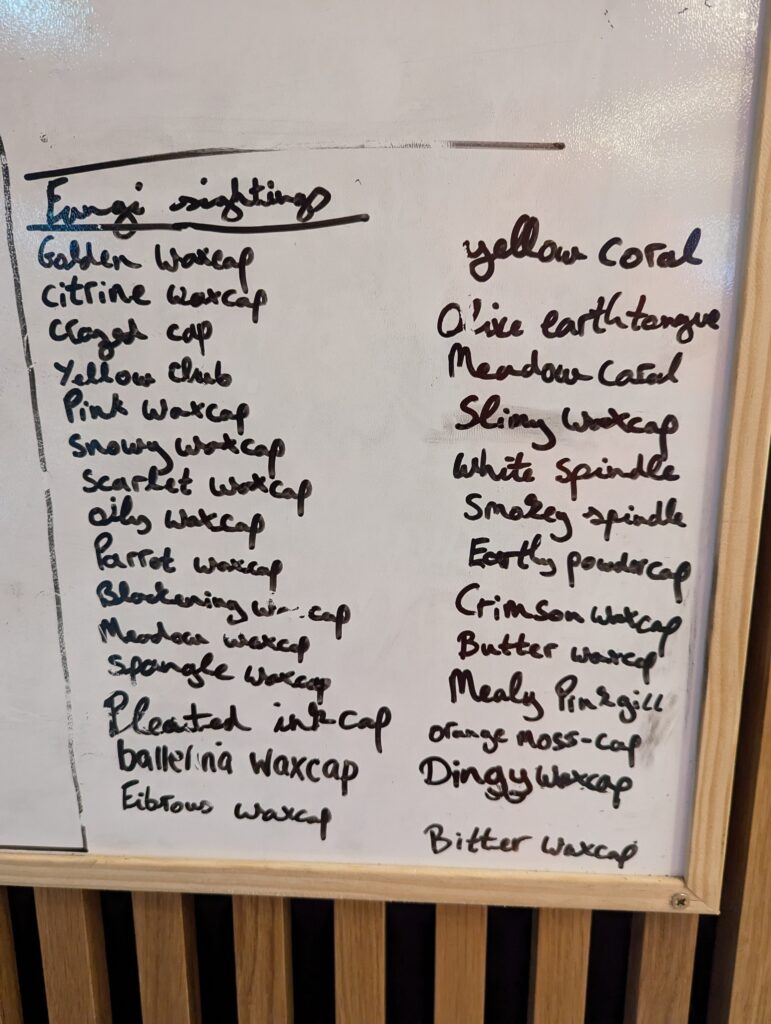 Fungi sightings
Golden waxcap
Citrine waxcap
Crazed cap
Yellow club
Pink waxcap
Snowy waxcap
Scarlet waxcap
oily waxcap
Parrot waxcap
Blackening waxcap
Meadow waxcap
Spangle waxcap
Pleated inkcap
ballerina waxcap
Fibrous waxcap
yellow coral
Olive earthtongue
Meadow Coral
Slimy waxcap
White spindle
Smokey spindle
Earthy powdercap
Crimson waxcap
Butter waxcap
Mealy Pinkgill
orange moss-cap
Dingy waxcap
Bitter waxcap